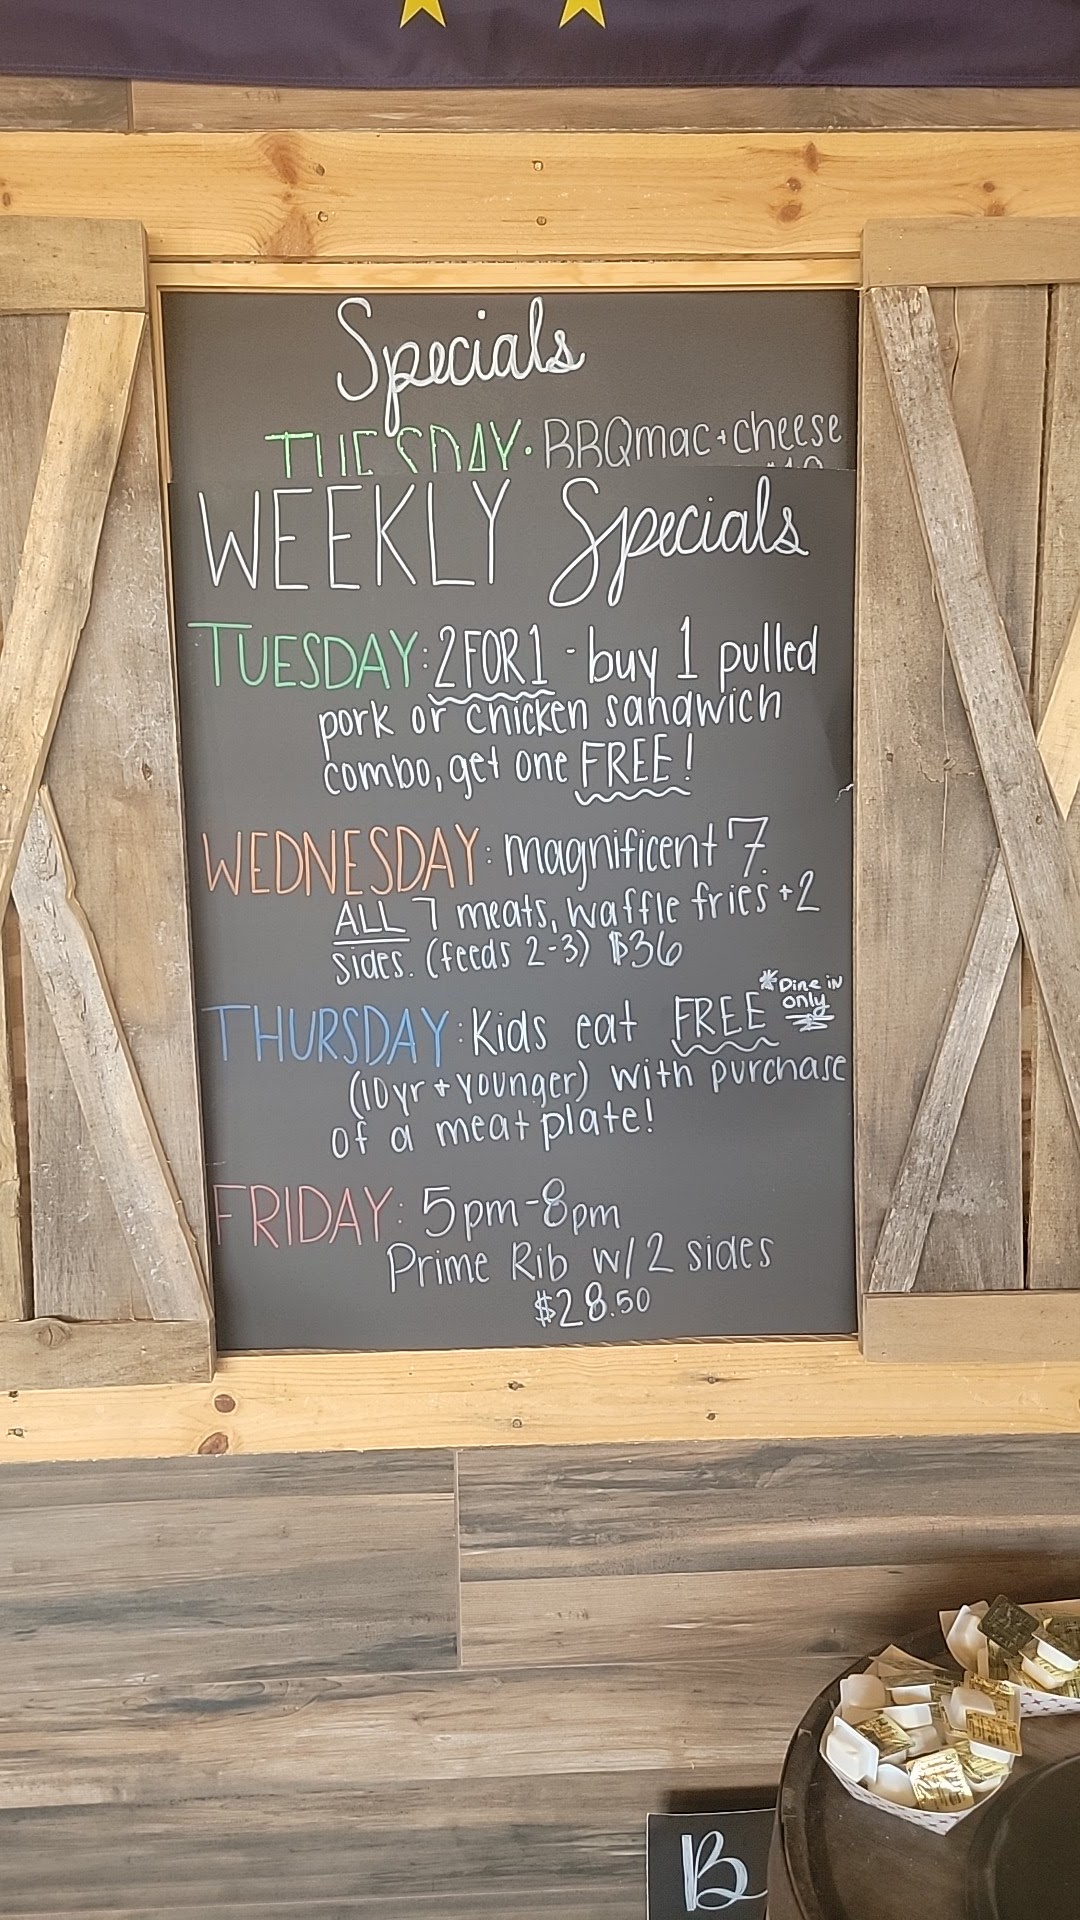 Specials
TUESDAY. BBQ mac + cheese
WEEKLY Specials
TUESDAY: 2 FOR 1 - buy 1 pulled
pork or chicken sandwich
combo, get one FREE!
WEDNESDAY: magnificent 7.
ALL 7 meats, waffle fries + 2
sides. (feeds 2-3) $36
THURSDAY: Kids eat FREE *Dine in
only
(10yr + younger) with purchase
of a meat plate!
FRIDAY: 5pm-8pm
Prime Rib w/ 2 sides
$28.50
B